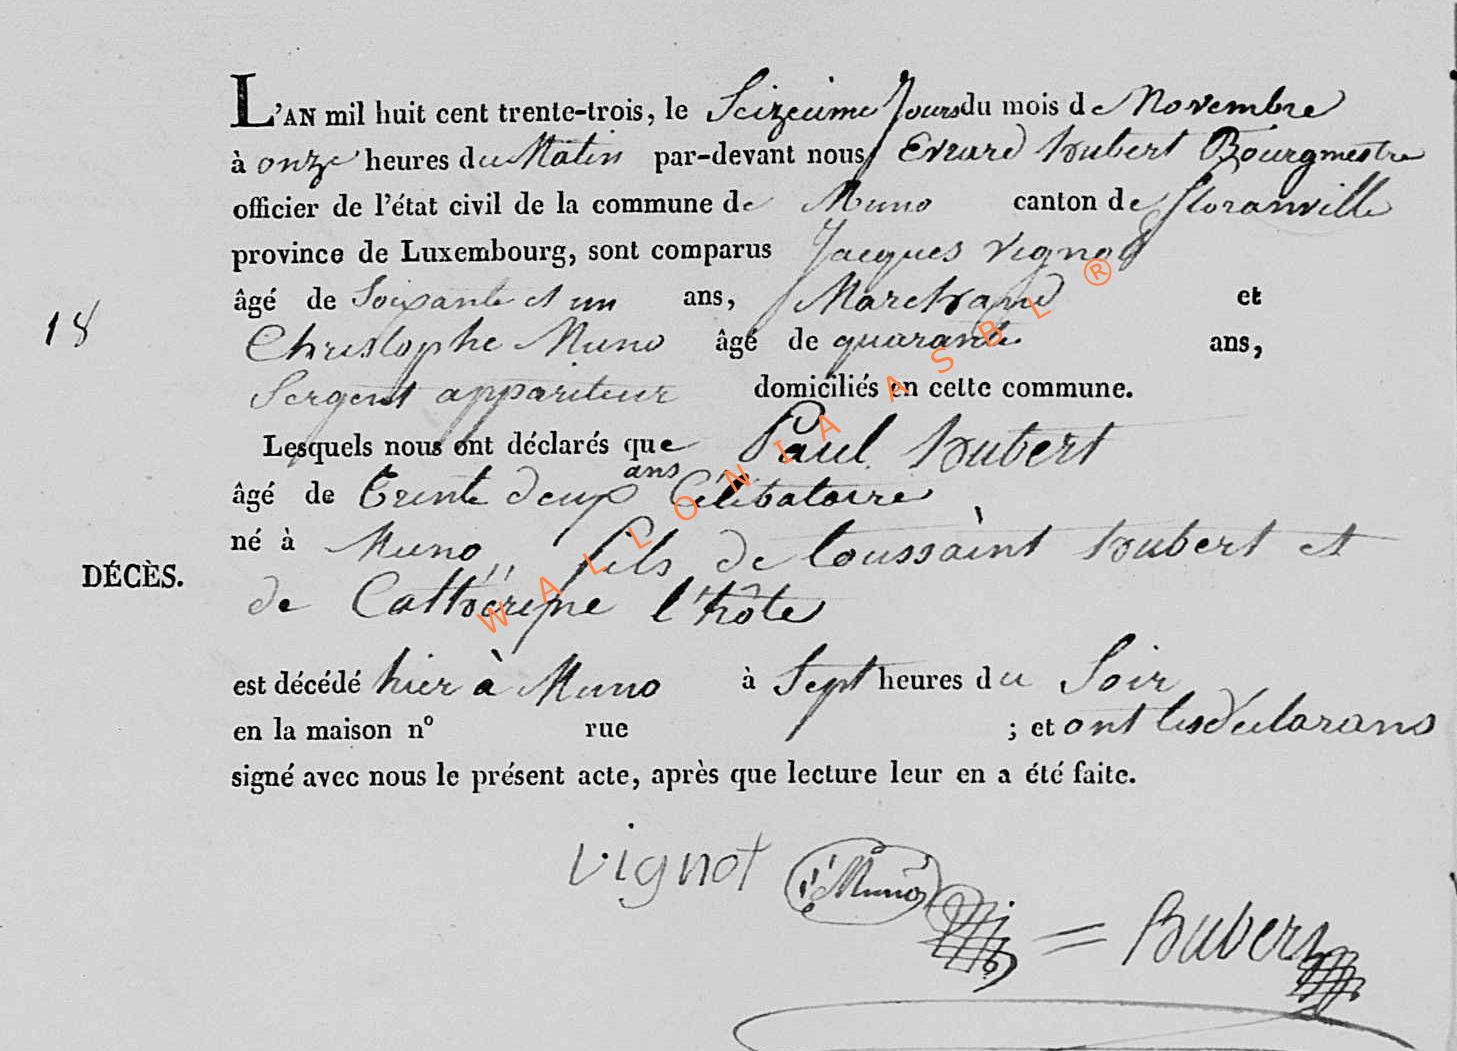 L'AN mil huit cent trente-trois, le Seizeiéme Jours du mois de Novembre
à onze heures du Matin par-devant nous Evrard hubert Bourgmestre
officier de l'état civil de la commune de Muno canton de floranville
province de Luxembourg, sont comparus Jacques Vignot
âgé de Soixante et un ans, Marchand et
18
Christophe Muno âgé de quarante ans,
Sergent appariteur domiciliés en cette commune.
Lesquels nous ont déclarés que Paul hubert
ans
âgé de trente deux Célibataire
né à Muno, fils de toussaint hubert et
DÉCÈS.
de Catherine l'hôte
est décédé hier à Muno à Sept heures du Soir
en la maison nº rue ; et ont les déclarans
signé avec nous le présent acte, après que lecture leur en a été faite.
vignot Muno = hubert
WALLONIA ASBL ®